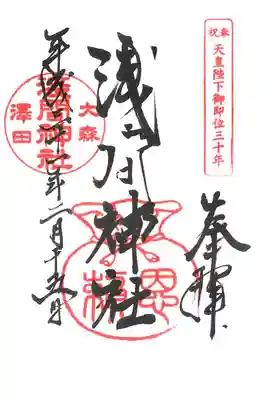 奉祝
天皇陛下御即位三十年
奉拝
浅間神社
大森
浅間神社
澤田
平成三十一年二月十五日